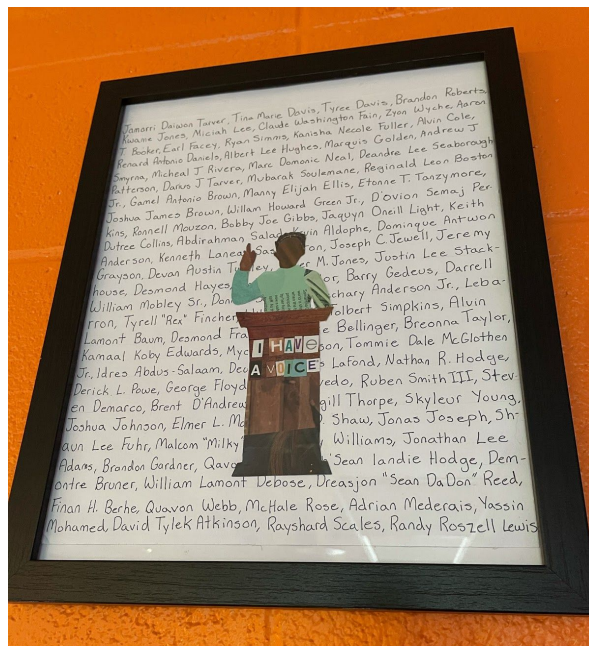 Jamarri Daiwon Tarver, Tina Marie Davis, Tyree Davis, Brandon Roberts,
Kwame Jones, Miciah Lee, Claude Washington Fain, Zyon Wyche, Aaron
T. Booker, Earl Facey, Ryan Simms, Kanisha Necole Fuller, Alvin Cole,
Renard Antonio Daniels, Albert Lee Hughes, Marquis Golden, Andrew J
Smyrna, Micheal J Rivera, Marc Domonic Neal, Deandre Lee Seaborough
Patterson, Darius J Tarver, Mubarak Soulemane, Reginald Leon Boston
Jr., Gamel Antonio Brown, Manny Elijah Ellis, Etonne T. Tanzymore,
Joshua James Brown, Willam Howard Green Jr., D'ovion Semaj Per-
kins, Ronnell Mouzon, Bobby Joe Gibbs, Jaquyn Oneill Light, Keith
Dutree Collins, Abdirahman Salad, Kevin Aldophe, Dominque Antwon
Anderson, Kenneth Joseph C Jewell, Jeremy
Grayson, Devan Austin M. Jones, Justin Lee Stack-
house, Desmond Hayes Barry Gedeus, Darrell
William Mobley Sr., Anderson Jr., Leba-
rron, Tyrell "Rex" Fincher Tolbert Simpkins, Alvin
Lamont Baum, Desmond Bellinger, Breonna Taylor,
Kamaal Koby Edwards, Tommie Dale McGlothen
Jr., Idres Abdus-Salaam, LaFond, Nathan R. Hodge,
Derick L. Powe, George Floyd Ruben Smith III, Stev-
en Demarco, Brent D'Andrew Thorpe, Skyleur Young,
Joshua Johnson, Elmer L. Shaw, Jonas Joseph, Sh-
aun Lee Fuhr, Malcom "Milky" Williams, Jonathan Lee
Adams, Brandon Gardner, "Sean landie Hodge, Dem-
ontre Bruner, William Lamont Debose, Dreasjon "Sean DaDon" Reed,
Finan H. Berhe, Quavon Webb, McHale Rose, Adrian Mederais, Yassin
Mohamed, David Tylek Atkinson, Rayshard Scales, Randy Roszell Lewis
I HAVE
A VOICE